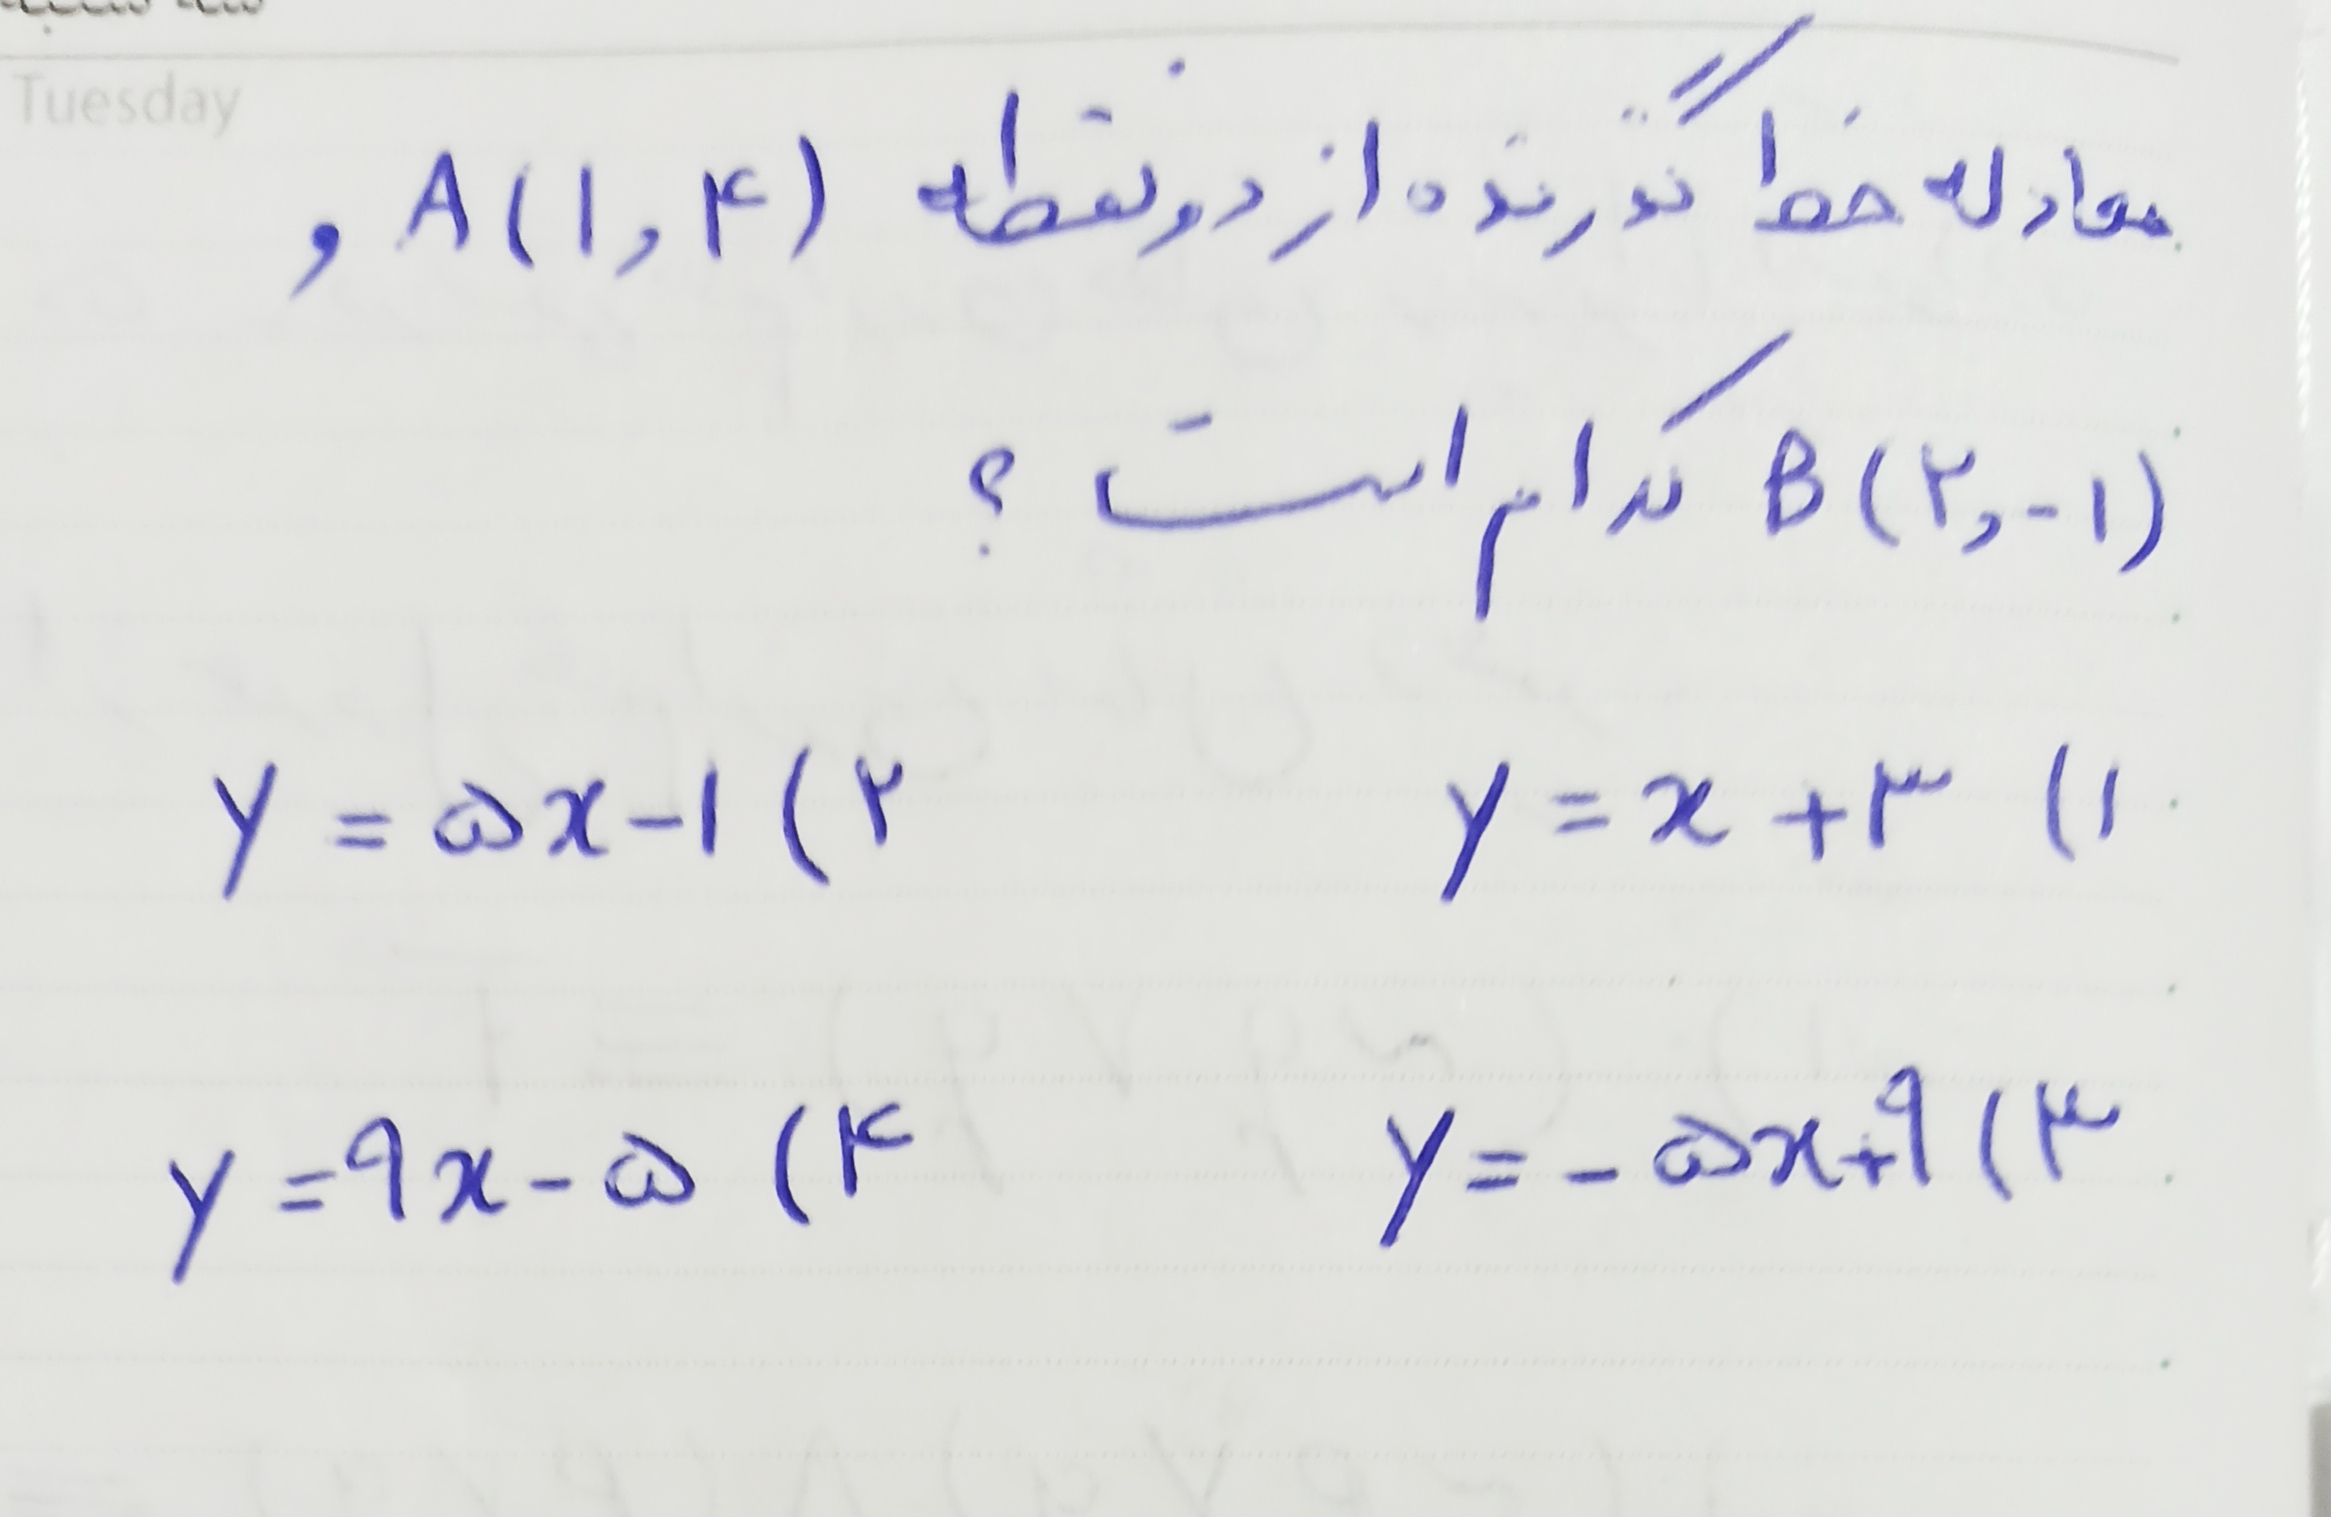 Tuesday
معادله خط گذرنده از دو نقطه A(۱,۴) و
B(۲,-۱) کدام است ؟
۱) y = x + ۳
۲) y = ۵x - ۱
۳) y = - ۵x + ۹
۴) y = ۹x - ۵